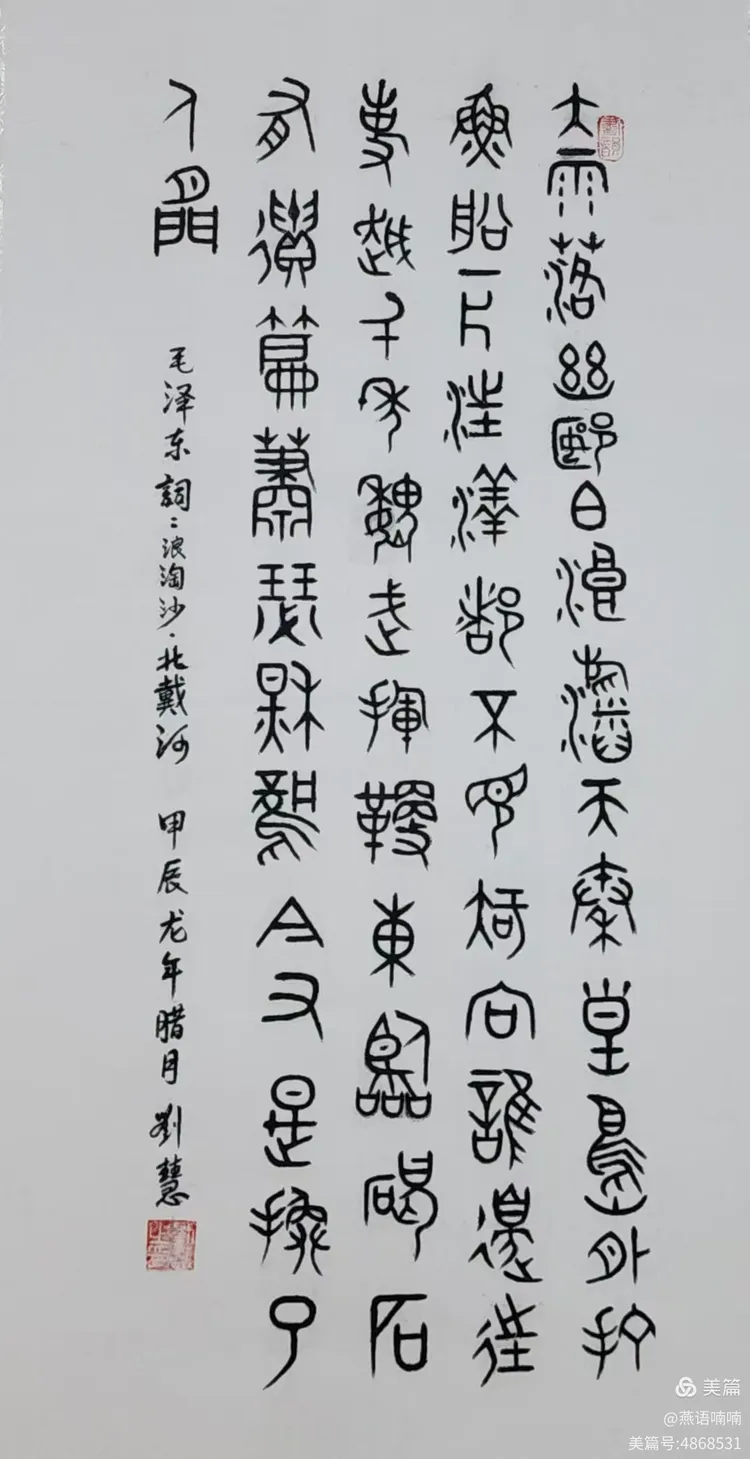 大雨落幽郾白浪滔天秦皇島外打
魚船一片汪洋都不見知向誰邊往
事越千年魏武揮鞭東臨碣石
有遺篇蕭瑟秋風今又是換了
人間
毛泽东詞:浪淘沙·北戴河 甲辰龙年腊月 劉慧
美篇
@燕语喃喃
美篇号:4868531